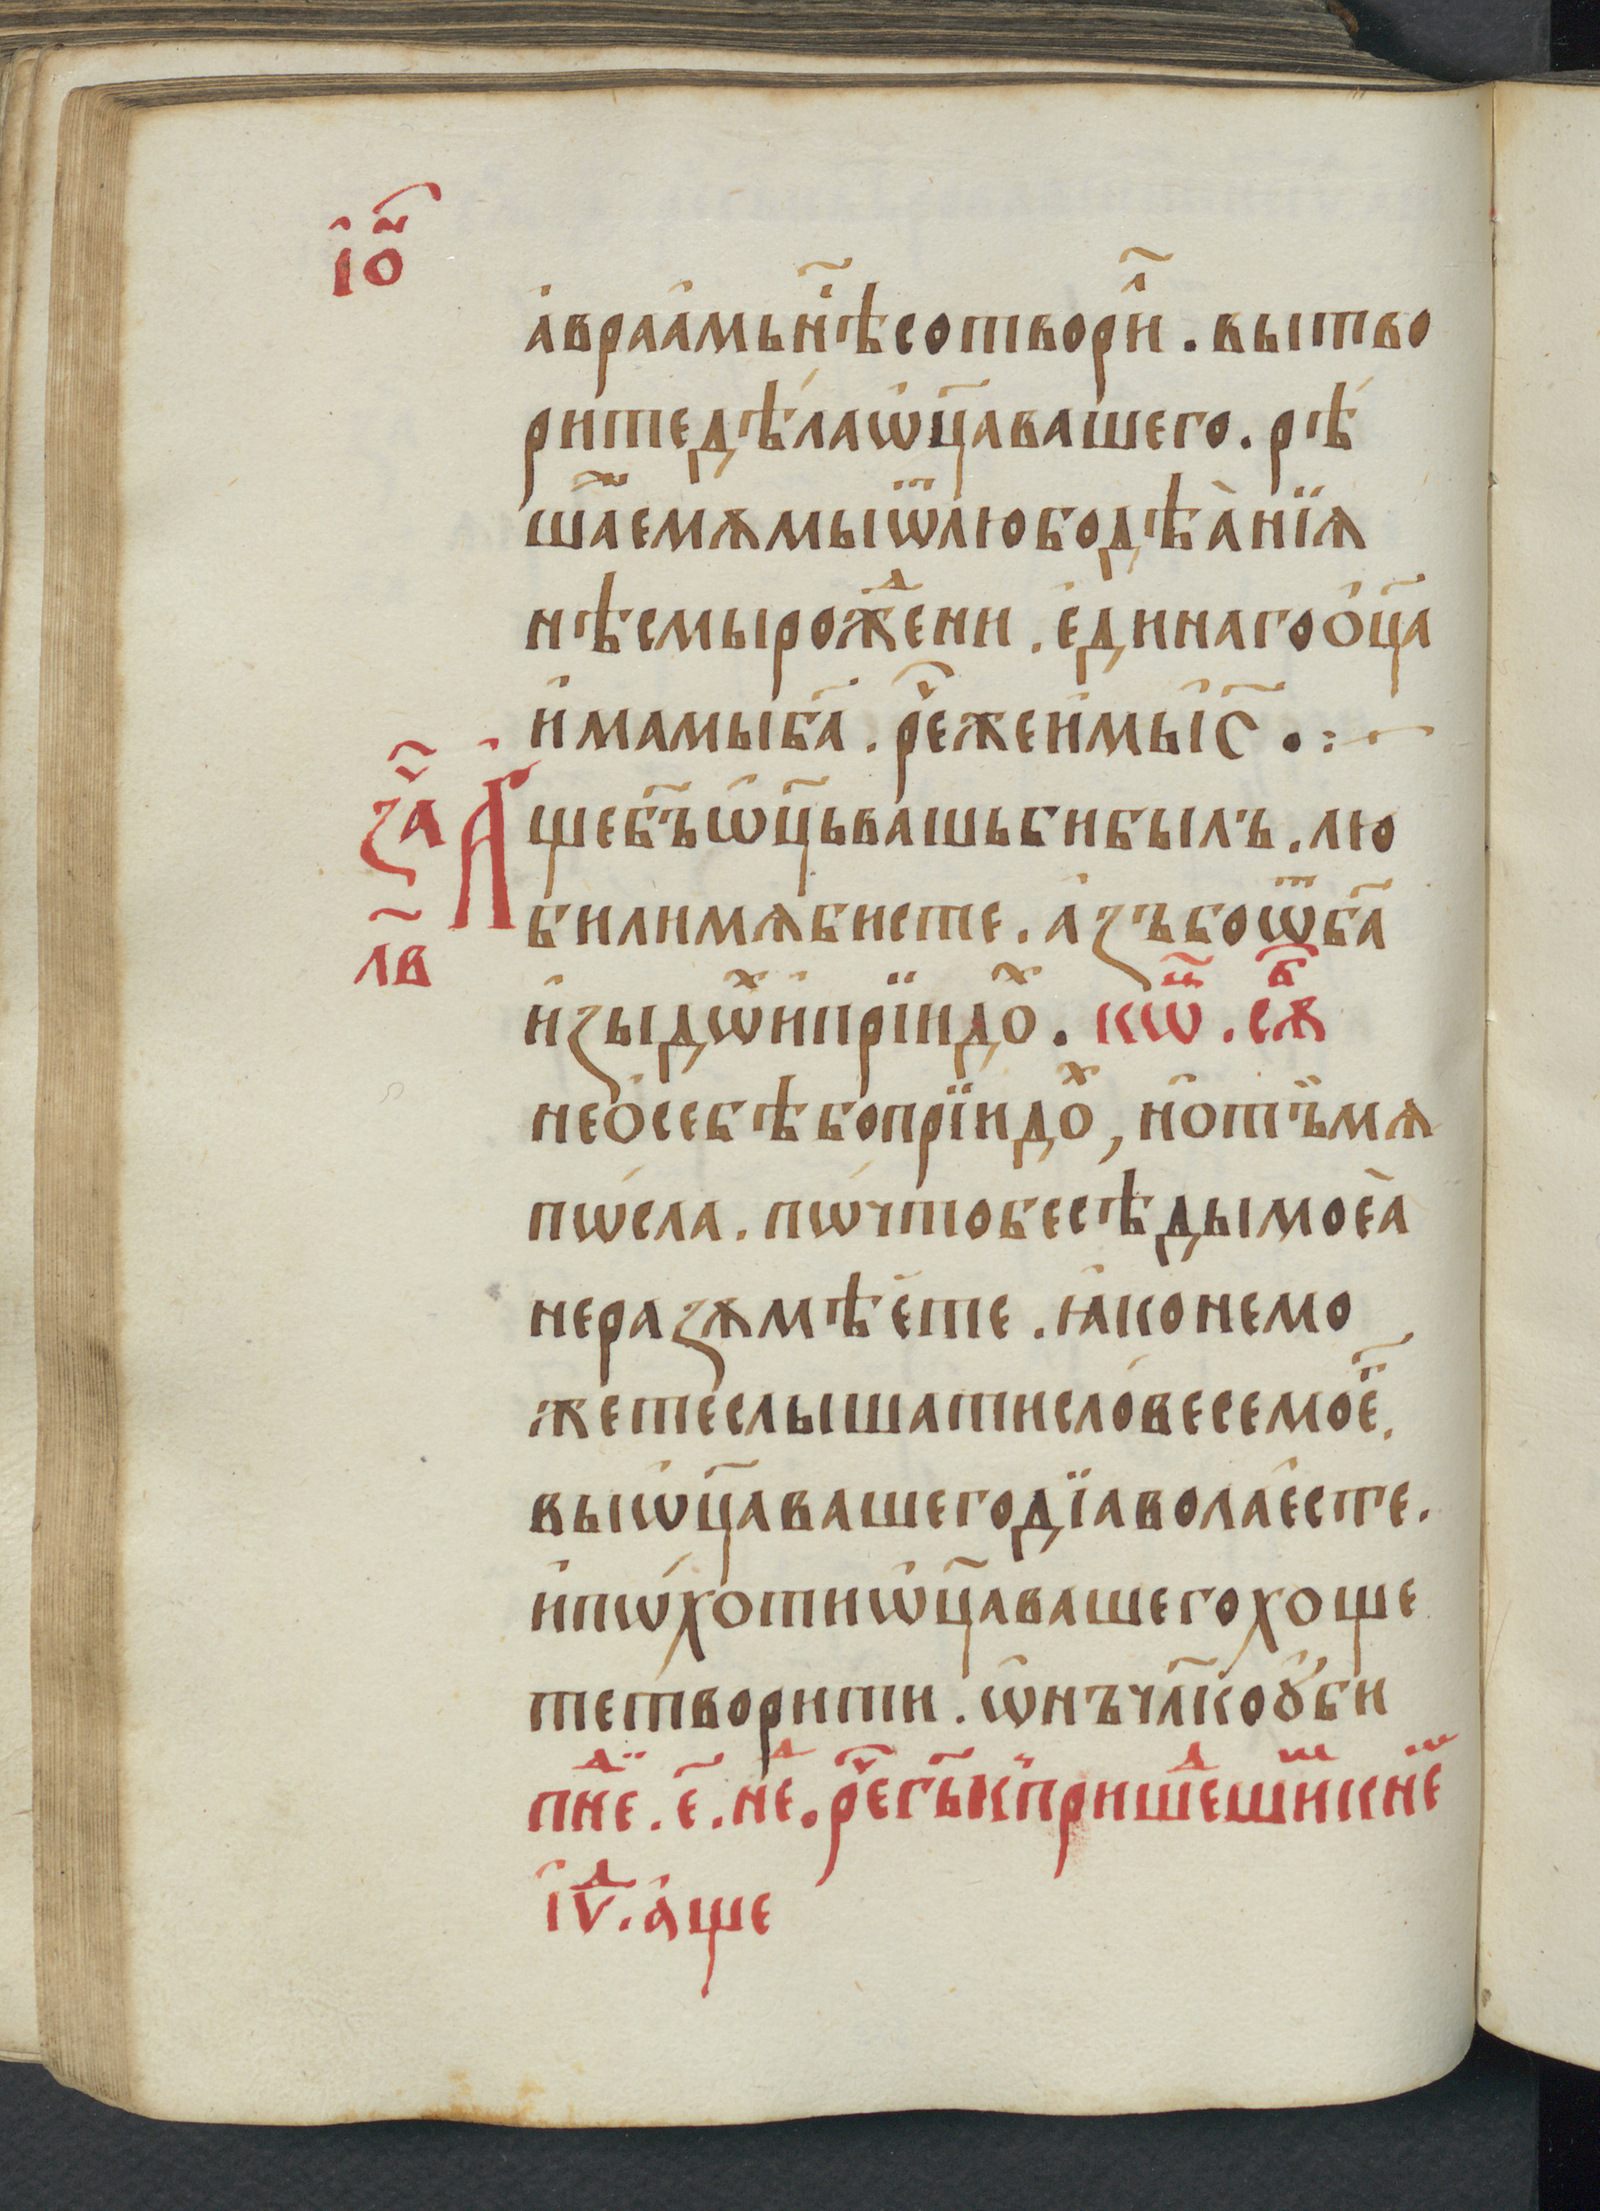 і҆ѡ҃
а҆враа҆мьнⷭ҇ѣсотворⷧ҇и . вытво
ритедѣ́лаѿц҃авашего . рѣ́
шаⷤ҇емꙋмыѿлюбодѣѧ́нїѧ
нѣсмыроⷤденⷩи . є҆динагоо҆ц҃а
и҆мамыбг҃а . рⷱ҇ежеи҆мы́і҆с҃ .:~
заⷱ҇ Ащебг҃ъѿц҃ьвашьбибылъ . лю
лв҃ билимѧбисте . а҆зъбоѿбг҃а
и҆зыдⷯѡи҆прїидⷪ҇хъ . коⷩ҇ . сꙋⷠ҇
неѡ҆себѣбопрїидо́хъ, но҆тъ́мѧ
пѡ́сла . пѡ́чтобесѣдымоеѧ̀
неразꙋмѣ́ете . ꙗ҆конемо
жетеслышатисло́весемоє҆г҃ѡ.
выѿц҃авашегодїаволае҆сте .
и҆пѡ́хотиѿц҃авашегохоще
тетворити . ѡ҆нъчл҃коу҆́би
пнⷣе . є҃ . неⷣ . рⷱ҇егь҃кпришеⷣшиⷨкнеⷨ
і҆ѵⷣ . а҆ще